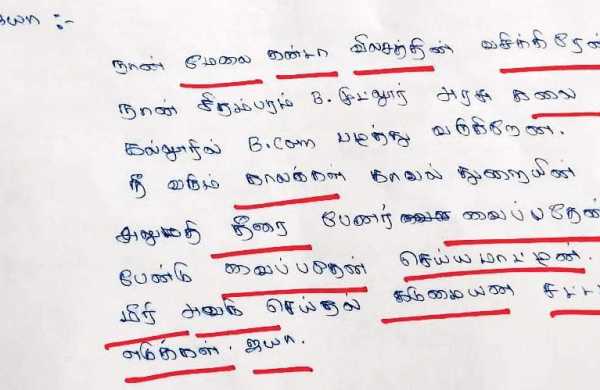 ஐயா :-
நான் மேலை கண்ட விலசத்தின் வசிந்திரேன்
நான் சிதம்பரம் B.முட்லூர் அரசு கலை
கல்லூரில் B.Com படித்து வடுகிறேன்.
நீ வரும் காலக்கள் காவல் துறையின்
அனுமதி தீரை பேனர் வைப்பதேன்
பேண்டு வைப்பதேன் செய்யமாட்டேன்.
மிரி அதை செய்தல் கடுமையன சட்ட
எடுத்கள். ஐயா.